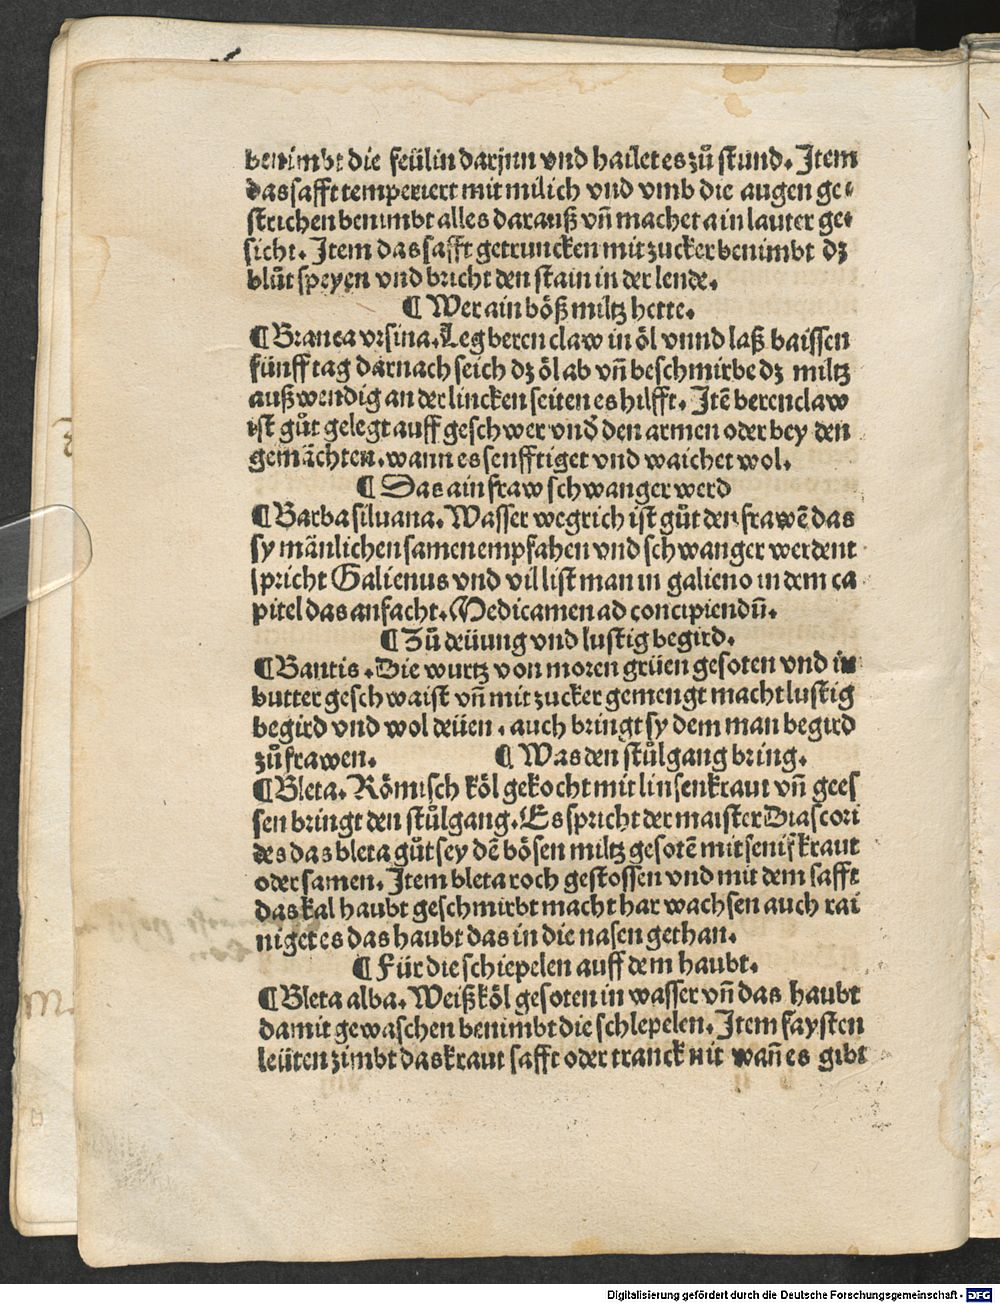 benimbt die feülin darjnn vnd hailet es zů stund. Jtem
das safft temperiert mit milich vnd vmb die augen ge⸗
strichen benimbt alles darauß vñ machet ain lauter ge⸗
sicht. Jtem das safft getruncken mit zucker benimbt dz
blůt speyen vnd bricht den stain in der lende.
¶ Wer ain böß miltz hette.
¶ Branca vrsina. Leg beren claw in öl vnnd laß baissen
fünff tag darnach seich dz öl ab vñ beschmirbe dz miltz
außwendig an der lincken seiten es hilfft. Jtē berenclaw
ist gůt gelegt auff geschwer vnd̄ den armen oder bey den
gemächten. wann es senfftiget vnd waichet wol.
¶ Das ain fraw schwanger werd
¶ Barba siluana. Wasser wegrich ist gůt den frawē das
sy mänlichen samen empfahen vnd schwanger werdent
spricht Galienus vnd vil list man in galieno in dem ca
pitel das anfacht. Medicamen ad concipiendū.
¶ Zů deüung vnd lustig begird.
¶ Bantis. Die wurtz von moren grüen gesoten vnd in
butter geschwaist vñ mit zucker gemengt macht lustig
begird vnd wol deüen. auch bringt sy dem man begird
zů frawen. ¶ Was den stůlgang bring.
¶ Bleta. Römisch köl gekocht mit linsenkraut vñ gees
sen bringt den stůlgang. Es spricht der maister Diascori
des das bleta gůt sey dē bösen miltz gesotē mit senif kraut
oder samen. Jtem bleta roch gestossen vnd mit dem safft
das kal haubt geschmirbt macht har wachsen auch rai
niget es das haubt das in die nasen gethan.
¶ Für die schiepelen auff dem haubt.
¶ Bleta alba. Weiß köl gesoten in wasser vñ das haubt
damit gewaschen benimbt die schlepelen. Jtem faysten
leüten zimbt das kraut safft oder tranck nit wañ es gibt
Digitalisierung gefördert durch die Deutsche Forschungsgemeinschaft - DFG